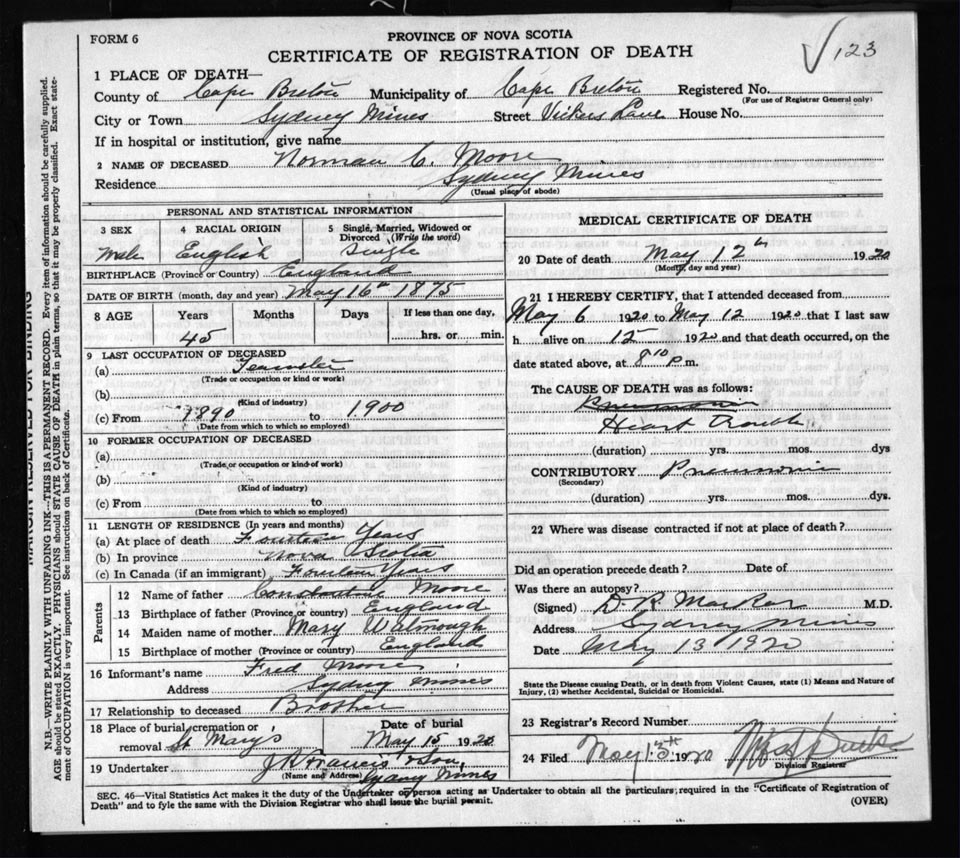 FORM 6
PROVINCE OF NOVA SCOTIA
CERTIFICATE OF REGISTRATION OF DEATH
123
1 PLACE OF DEATH—
County of Cape Breton Municipality of Cape Breton Registered No.
(For use of Registrar General only)
City or Town Sydney Mines Street Vickers Lane House No.
If in hospital or institution, give name
2 NAME OF DECEASED Norman C. Moore
Residence Sydney Mines
(Usual place of abode)
PERSONAL AND STATISTICAL INFORMATION
3 SEX 4 RACIAL ORIGIN 5 Single, Married, Widowed or Divorced (Write the word)
Male English Single
BIRTHPLACE (Province or Country) England
DATE OF BIRTH (month, day and year) May 16th 1875
8 AGE Years Months Days If less than one day,
45 hrs. or min.
9 LAST OCCUPATION OF DECEASED
(a) Teamster
(Trade or occupation or kind or work)
(b)
(Kind of industry)
(c) From 1890 to 1900
(Date from which to which so employed)
10 FORMER OCCUPATION OF DECEASED
(a)
(Trade or occupation or kind of work)
(b)
(Kind of industry)
(c) From to
(Date from which to which so employed)
11 LENGTH OF RESIDENCE (In years and months)
(a) At place of death Fourteen Years
(b) In province Nova Scotia
(c) In Canada (if an immigrant) Fourteen Years
Parents
12 Name of father Moore
13 Birthplace of father (Province or country) England
14 Maiden name of mother Mary Walmough
15 Birthplace of mother (Province or country) England
16 Informant's name Fred Moore
Address Sydney Mines
17 Relationship to deceased Brother
18 Place of burial, cremation or removal St Mary's Date of burial May 15 1920
19 Undertaker & Son,
(Name and Address) Sydney Mines
MEDICAL CERTIFICATE OF DEATH
20 Date of death May 12th 1920
(Month, day and year)
21 I HEREBY CERTIFY, that I attended deceased from
May 6 1920 to May 12 1920 that I last saw
h alive on 12 1920 and that death occurred, on the
date stated above, at 8 10 p.m.
The CAUSE OF DEATH was as follows:
Pneumonia
Heart Trouble
(duration) yrs. mos. dys
CONTRIBUTORY Pneumonia
(Secondary)
(duration) yrs. mos. dys.
22 Where was disease contracted if not at place of death?
Did an operation precede death? Date of
Was there an autopsy?
(Signed) D. R. M.D.
Address Sydney Mines
Date May 13 1920
State the Disease causing Death, or in death from Violent Causes, state (1) Means and Nature of
Injury, (2) whether Accidental, Suicidal or Homicidal.
23 Registrar's Record Number
24 Filed May 13th 1920
Division Registrar
SEC. 46—Vital Statistics Act makes it the duty of the Undertaker or person acting as Undertaker to obtain all the particulars required in the "Certificate of Registration of
Death" and to fyle the same with the Division Registrar who shall issue the burial permit.
(OVER)
MARGIN RESERVED FOR BINDING
N.B.—WRITE PLAINLY WITH UNFADING INK—THIS IS A PERMANENT RECORD. Every item of information should be carefully supplied.
AGE should be stated EXACTLY. PHYSICIANS should STATE CAUSE OF DEATH in plain terms, so that it may be properly classified. Exact state-
ment of OCCUPATION is very important. See instructions on back of Certificate.